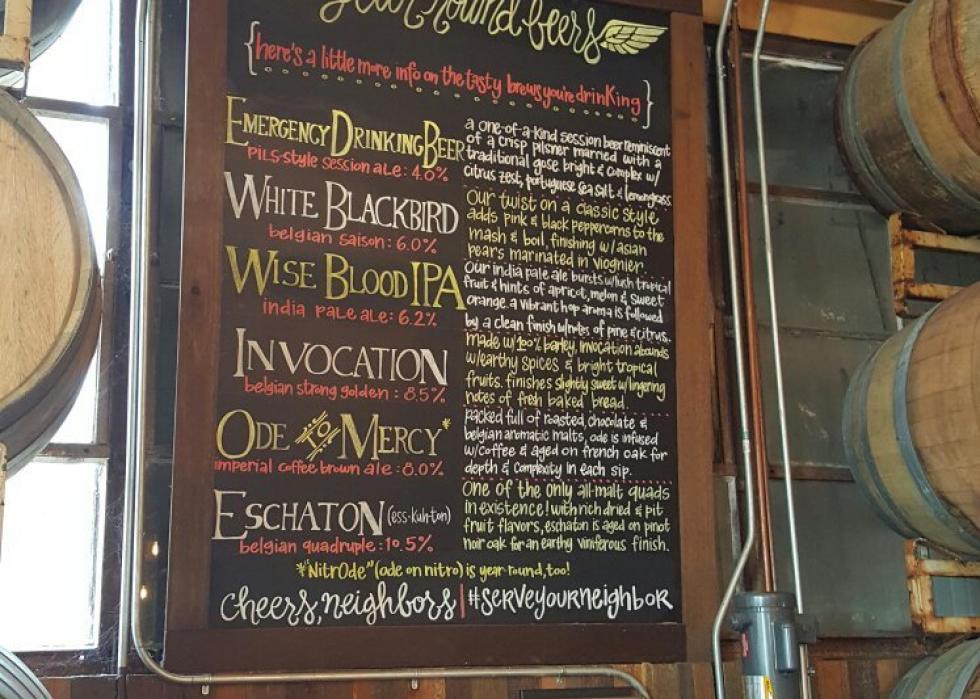 year round beers
{here's a little more info on the tasty brews you're drinking}
EMERGENCY DRINKING BEER
PILS-style session ale: 4.0%
a one-of-a-kind session beer reminiscent
of a crisp pilsner married with a
traditional gose bright & complex w/
citrus zest, portuguese sea salt & lemongrass
WHITE BLACKBIRD
belgian saison: 6.0%
Our twist on a classic style
adds pink & black peppercorns to the
mash & boil, finishing w/ asian
pears marinated in viognier.
WISE BLOOD IPA
india pale ale: 6.2%
Our india pale ale bursts w/lush tropical
fruit & hints of apricot, melon & sweet
orange. a vibrant hop aroma is followed
by a clean finish w/notes of pine & citrus.
INVOCATION
belgian strong golden: 8.5%
made w/ 100% barley, invocation abounds
w/earthy spices & bright tropical
fruits. finishes slightly sweet w/lingering
notes of fresh baked bread.
ODE TO MERCY*
imperial coffee brown ale: 8.0%
packed full of roasted, chocolate &
belgian aromatic malts, ode is infused
w/coffee & aged on french oak for
depth & complexity in each sip.
ESCHATON (ess-kuh-ton)
belgian quadruple: 10.5%
One of the only all-malt quads
in existence! with rich dried & pit
fruit flavors, eschaton is aged on pinot
noir oak for an earthy viniferous finish.
*"NitrOde" (ode on nitro) is year-round, too!
cheers, neighbors | #serveyourneighbor